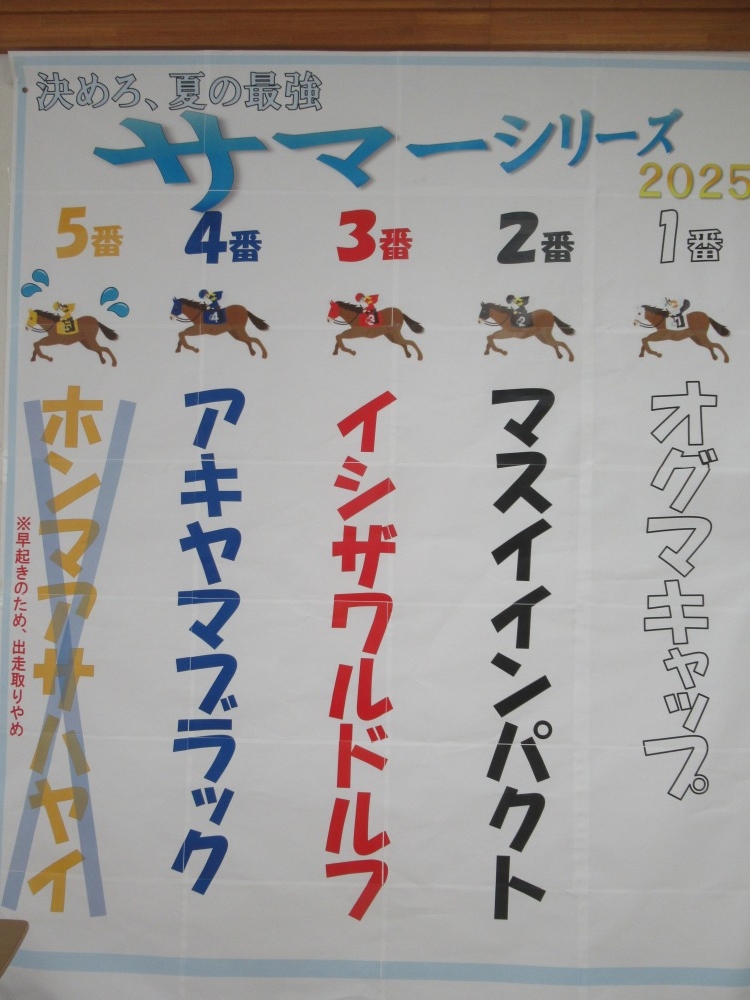 決めろ、夏の最強
サマーシリーズ
2025
1番
1
オグマキャップ
2番
2
マスイインパクト
3番
3
イシザワルドルフ
4番
4
アキヤマブラック
5番
5
ホンマアサハヤイ
※早起きのため、出走取りやめ